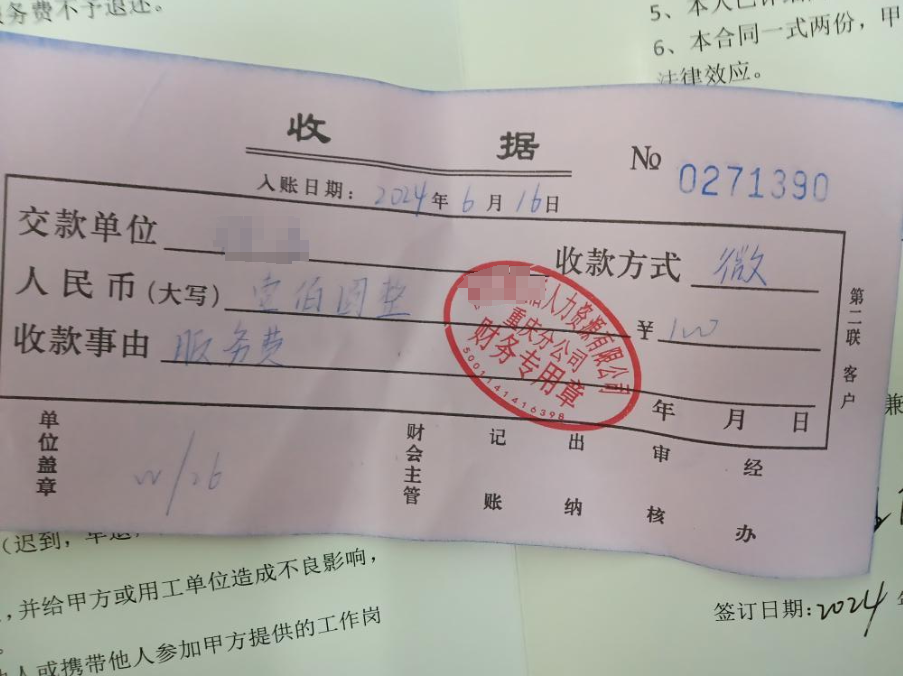 服务费不予退还。
5、本人已详
6、本合同一式两份，甲
法律效应。
收 据
No 0271390
入账日期：2024年6月16日
交款单位
收款方式 微
人民币（大写）壹佰圆整
¥100
收款事由 服务费
人力资源有限公司
重庆分公司
财务专用章
5001141416398
年 月 日
第二联 客户
单位盖章
财会主管
记账
出纳
审核
经办
（迟到，早退，
，并给甲方或用工单位造成不良影响，
人或携带他人参加甲方提供的工作岗
签订日期：2024